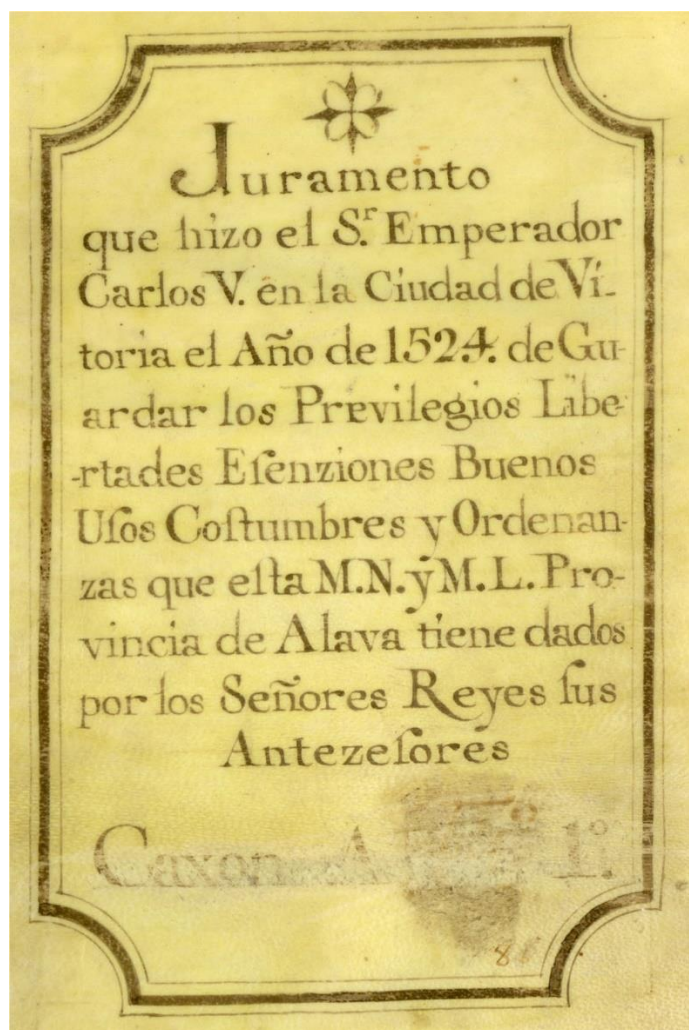 Juramento
que hizo el S.r Emperador
Carlos V. en la Ciudad de Vi-
toria el Año de 1524. de Gu-
ardar los Previlegios Libe-
-rtades Eſenziones Buenos
Uſos Coſtumbres y Ordenan-
zas que eſta M.N. ÿ M.L. Pro-
vincia de Alava tiene dados
por los Señores Reyes ſus
Antezeſores
Caxon A 1º.
8